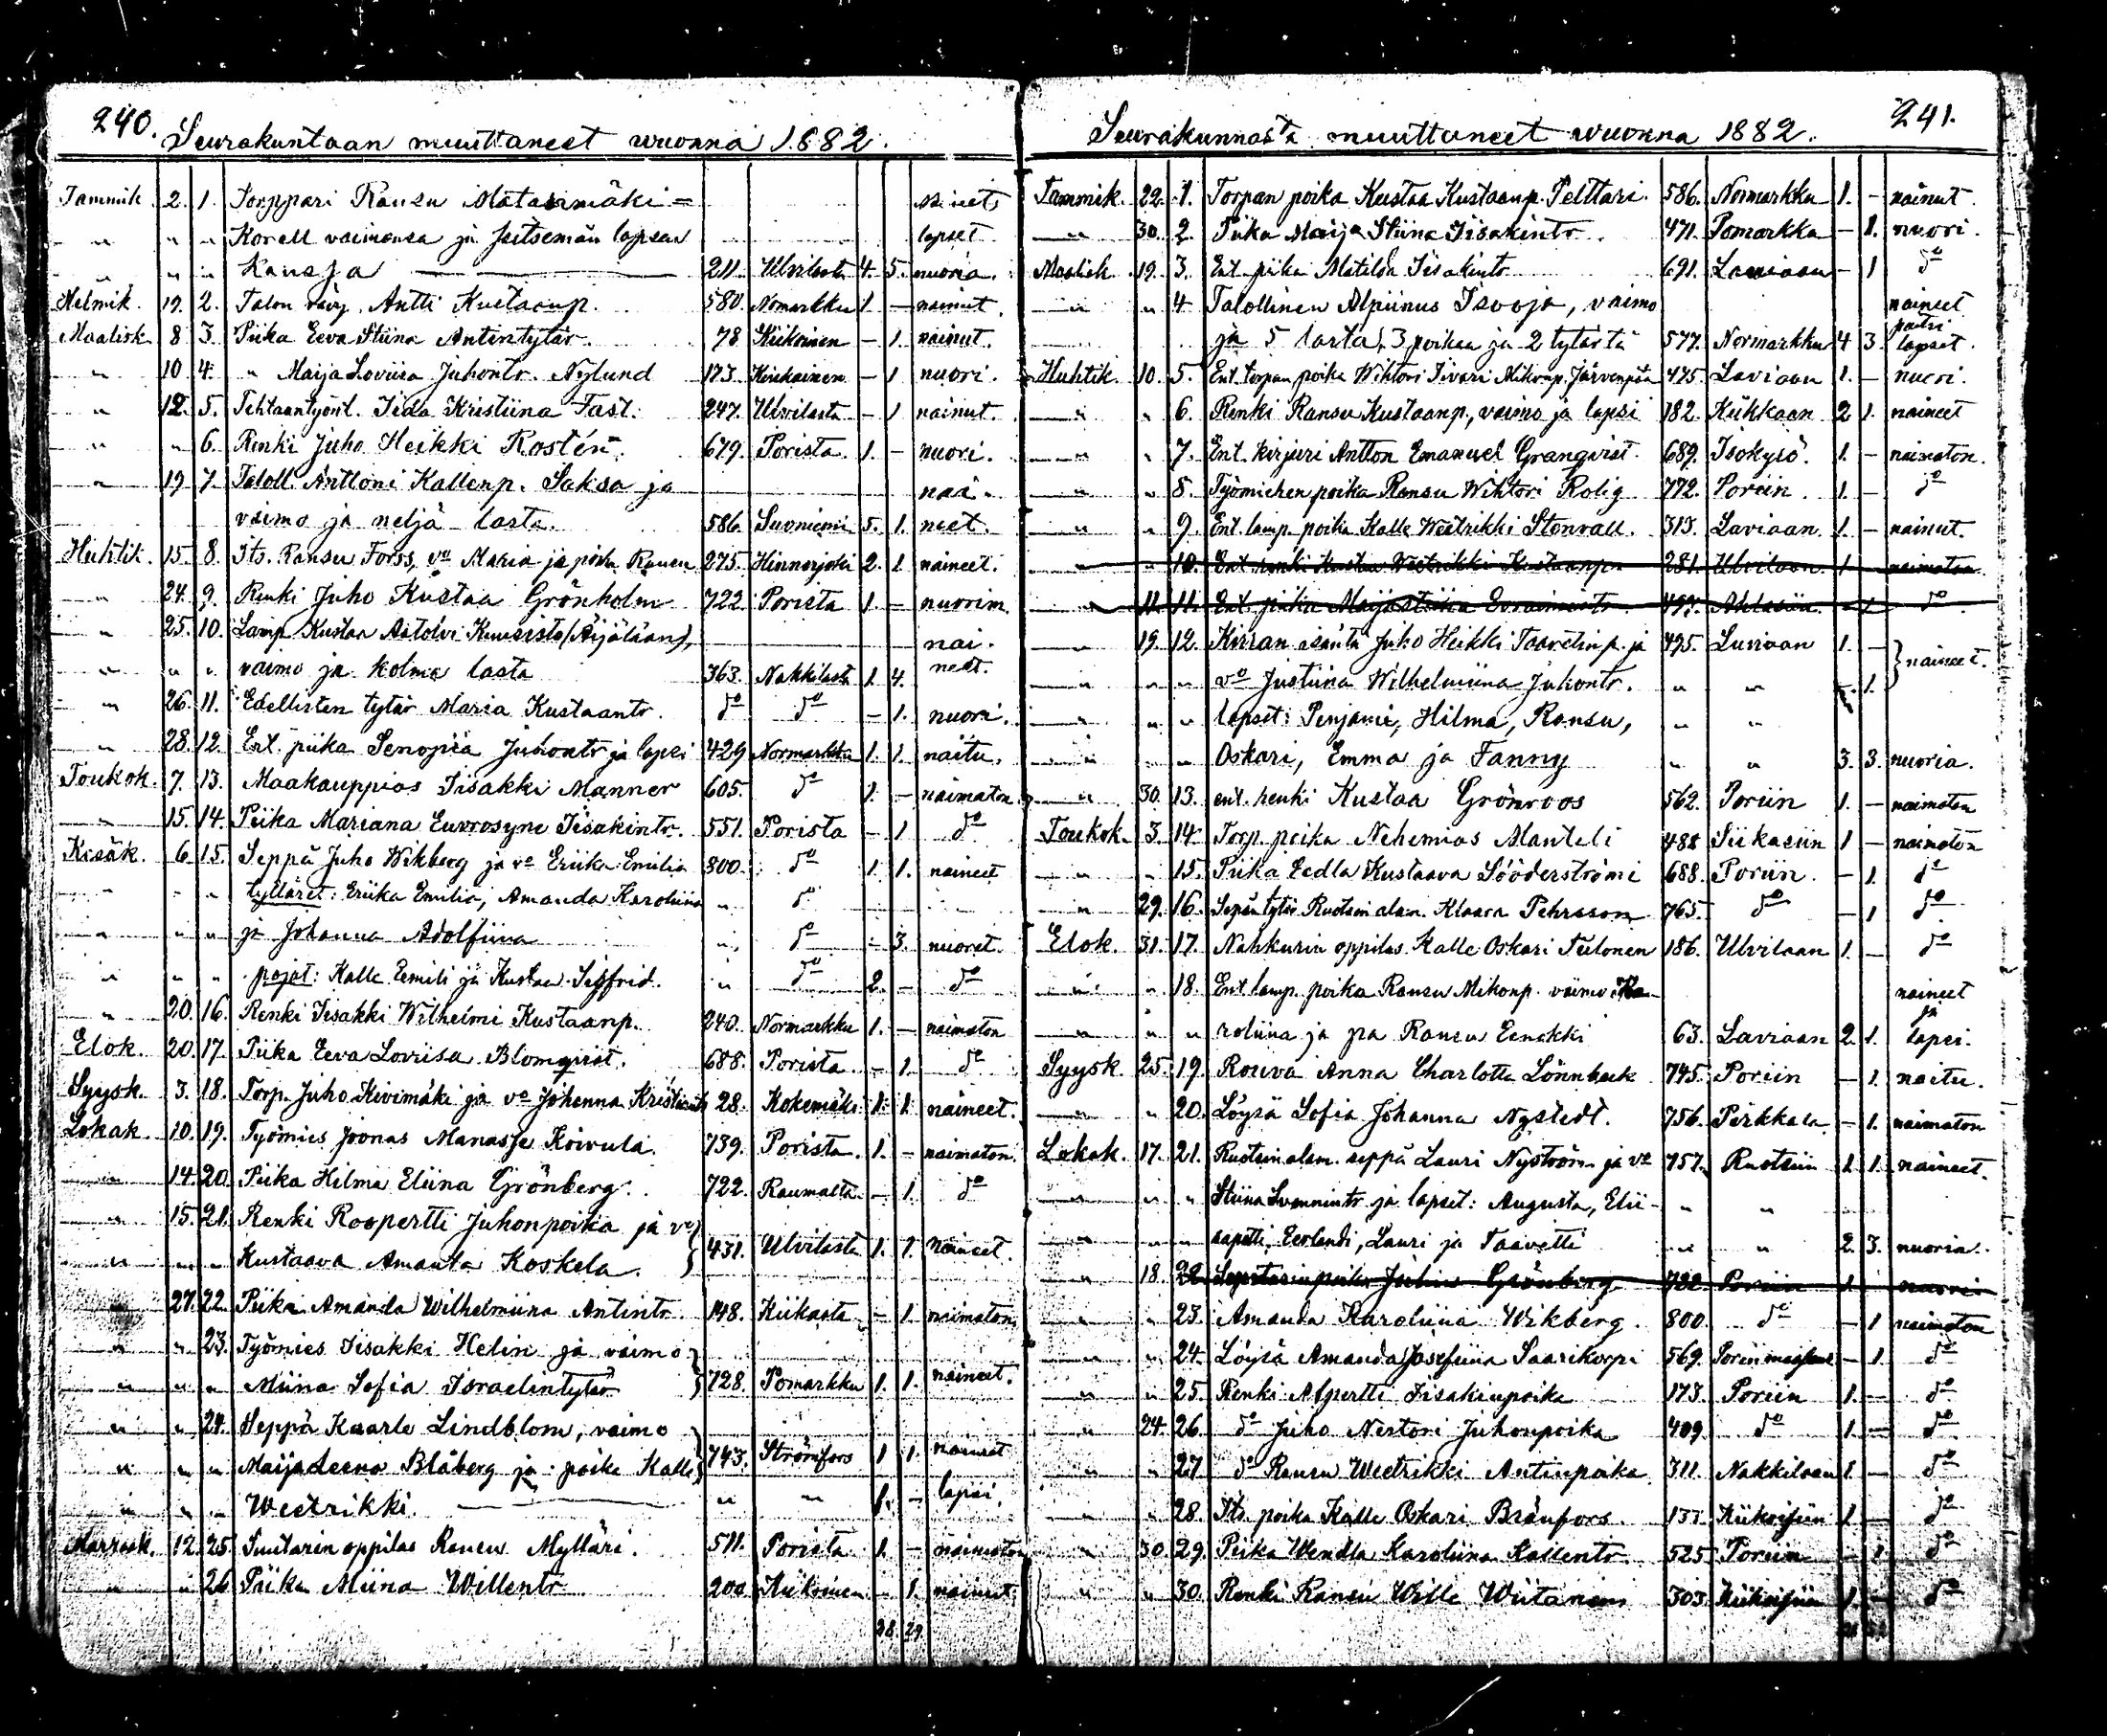 240.
Seurakuntaan muuttaneet wuonna 1882.
Tammik. 2. 1. Torppari Ransu Matasmäki =
" " " Korell vaimonsa ja seitsemän lapsen lapset
" " " kansja 211. Ulvilasta 4. 5. nuoria.
Helmik. 19. 2. Talon väv. Antti Kustaanp. 580. Nomarkku 1. — nainut.
Maalisk 8 3. Piika Eeva Stiina Antintytär. 78 Kiikoinen — 1. nainut.
" 10 4. " Maija Loviisa Juhontr. Nylund 173. — 1 nuori.
" 12. 5. Tehtaantyönt. Iida Kristiina Fast. 247. Ulvilasta — 1 nainut.
" " 6. Renki Juho Heikki Rostén. 679. Porista. 1. — nuori.
" 19 7. Taloll. Anttoni Kallenp. Saksa ja nai-
vaimo ja neljä lasta. 586. Suoniemi 5. 1. neet.
Huhtik. 15. 8. Its. Ransu Forss, vo Maria ja poika Ransu 275. Hinnerjoki 2. 1. naineet.
" 24. 9. Renki Juho Kustaa Grönholm 722. Porista 1. — nuorim.
" 25. 10. Lamp. Kustaa Astolvi Kuusisto (Äijälään), nai-
" " " vaimo ja kolme lasta 363. Nakkilasta 1. 4. neet.
" 26. 11. Edellisten tytär Maria Kustaantr. do do — 1. nuori.
" 28. 12. Ent. piika Senopia Juhontr ja lapsi 429 Normarkku 1. 1. naitu.
Toukok. 7. 13. Maakauppias Iisakki Manner 605. do 1. — naimaton.
" 15. 14. Piika Mariana Euvrosyne Iisakintr. 551. Porista — 1 do
Kesäk. 6. 15. Seppä Juho Wikberg ja vo Eriika Emilia 800. do 1. 1. naineet
" " " tyttäret: Eriika Emilia, Amanda Karoliina " do
" " " ja Johanna Adolfiina " do — 3. nuoret.
" " " pojat: Kalle Eemili ja Kustaa Sigfrid. " do 2. — do
" 20. 16. Renki Iisakki Wilhelmi Kustaanp. 240. Normarkku 1. — naimaton
Elok. 20. 17. Piika Eeva Loviisa Blomqvist. 688. Porista — 1. do
Syysk. 3. 18. Torp. Juho Kivimäki ja vo Johanna 28. Kokemäki 1. 1. naineet.
Lokak. 10. 19. Työmies Joonas Manasse Koivula. 739. Porista. 1. — naimaton.
" 14. 20. Piika Hilma Eliina Grönberg. 722. Raumalta. — 1. do
" 15. 21. Renki Roopertti Juhonpoika ja vo
" " " Kustaava Amanta Koskela. 431. Ulvilasta 1. 1. naineet.
" 27. 22. Piika Amanda Wilhelmiina Antintr. 148. Kiikasta — 1. naimaton.
" " 23. Työmies Iisakki Helin ja vaimo
" " " Miina Sofia Israelintytär 728. Pomarkku 1. 1. naineet.
" " 24. Seppä Kaarlo Lindblom, vaimo
" " " Maija Leena Blåberg ja poika Kalle 743. Strömfors 1 1. naineet
" " " Weetrikki. " " 1. — lapsi.
Marrask. 12. 25. Suutarin oppilas Ransu Mylläri. 511. Porista 1. — naimaton
" " 26. Piika Miina Willentr. 200. Kiikoinen — 1. nainut.
28. 29.
241.
Seurakunnasta muuttaneet wuonna 1882.
Tammik. 22. 1. Torpan poika Kustaa Kustaanp. Pelttari. 586. Normarkku 1. — nainut.
" 30. 2. Piika Maija Stiina Iisakintr. 471. Pomarkku — 1. nuori.
Maalisk. 19. 3. Ent. piika Matilda Iisakintr. 691. Laviaan — 1 do
" " 4 Talollinen Alpiinus Isooja, vaimo naineet
ja 5 lasta, 3 poikaa ja 2 tytärtä 577. Normarkku 4 3. paitsi lapset.
Huhtik. 10. 5. Ent. torpan poika Wihtori Iivari Mikonp. Järvenpää 475. Laviaan 1. — nuori.
" " 6. Renki Ransu Kustaanp., vaimo ja lapsi 182. Kiikkaan 2 1. naineet
" " 7. Ent. kirjuri Antton Emanuel Granqvist. 689. Isokyrö. 1. — naimaton.
" " 8. Työmiehen poika Ransu Wihtori Rolig 772. Poriin. 1. — do
" " 9. Ent. lamp. poika Kalle Weetrikki Stonvall. 313. Laviaan. 1. — nainut.
" " 10. Ent. renki Kustaa Weetrikki Kustaanpn 281. Ulvilaan. 1. — naimaton.
" 11. 11. Ent. piika Maija Stiina — 1 do.
" 19. 12. Kirran isäntä Juho Heikki Taavetinp. ja 495. Luviaan 1. —
" " " vo Justiina Wilhelmiina Juhontr. " " — 1. naineet.
" " " lapset: Penjami, Hilma, Ransu, " "
" " " Oskari, Emma ja Fanny " " 3. 3. nuoria.
" 30. 13. ent. renki Kustaa Grönroos 562. Poriin 1. — naimaton
Toukok. 3. 14. Torp. poika Nehemias Manteli 488 Siikasiin 1 — naimaton
" " 15. Piika Eedla Kustaava Sööderströmi 688. Poriin. — 1. do
" 29. 16. Sepän tytär Ruotsin alam. Klaara Pehrsson 765. do — 1 do.
Elok. 31. 17. Nahkurin oppilas Kalle Oskari Tulonen 186. Ulvilaan 1. — do
" " 18. Ent. lamp. poika Ransu Mikonp. vaimo Ka- naineet ja
" " " roliina ja pa Ransu Eenokki 63. Laviaan 2. 1. lapsi.
Syysk. 25. 19. Rouva Anna Charlotta Lönnbeck 745. Poriin — 1. naitu.
" " 20. Löysä Sofia Johanna Nystedt. 756. Pirkkala. — 1. naimaton
Lokak. 17. 21. Ruotsin alam. seppä Lauri Nyström ja vo 757. Ruotsiin 1. 1. naineet.
" " " Stiina Svennintr ja lapset: Augusta, Elii- " "
" " " sapetti, Eerlandi, Lauri ja Taavetti " " 2. 3. nuoria.
" 18. 22. Julius Grönberg 722. Poriin 1. nuori
" " 23. Amanda Karoliina Wikberg. 800. do — 1 naimaton
" " 24. Löysä Amanda Josefiina Saarikorpi 569. Porin maaseur. — 1. do
" " 25. Renki Alpertti Iisakinpoika 173. Poriin 1. — do
" 24. 26. do Juho Nestori Juhonpoika 409 do 1. — do
" " 27 do Ransu Weetrikki Antinpoika 311. Nakkilaan 1. — do
" " 28. Its. poika Kalle Oskari Brånfors. 133. Kiikoisiin 1. — do
" 30. 29. Piika Wendla Karoliina Kallentr. 525 Poriin — 1 do
" " 30. Renki Ransu Wille Wiitanen 303. Kiikoisiin 1. — do